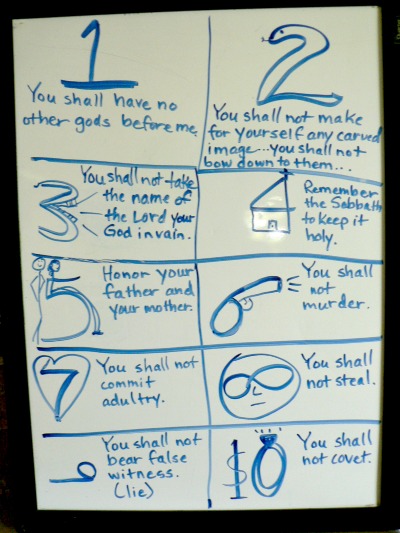 1
You shall have no
other gods before me.
2
You shall not make
for yourself any carved
image...you shall not
bow down to them...
3
You shall not take
the name of
the Lord your
God in vain.
4
Remember
the Sabbath
to keep it
holy.
5
Honor your
father and
your mother.
6
You shall
not
murder.
7
You shall not
commit
adultry.
8
You shall
not steal.
9
You shall not
bear false
witness.
(lie)
10
You shall
not covet.